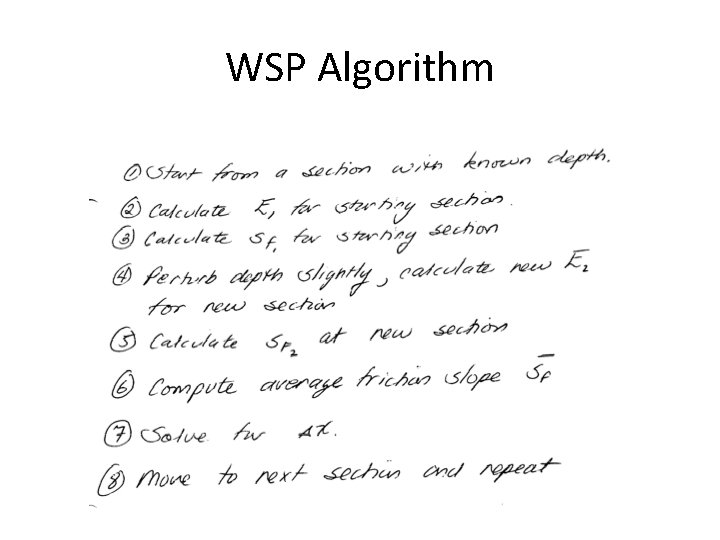 WSP Algorithm
① Start from a section with known depth.
② Calculate E₁ for starting section.
③ Calculate Sf₁ for starting section
④ Perturb depth slightly, calculate new E₂
for new section
⑤ Calculate Sf₂ at new section
⑥ Compute average friction slope S̄f
⑦ Solve for Δx.
⑧ Move to next section and repeat